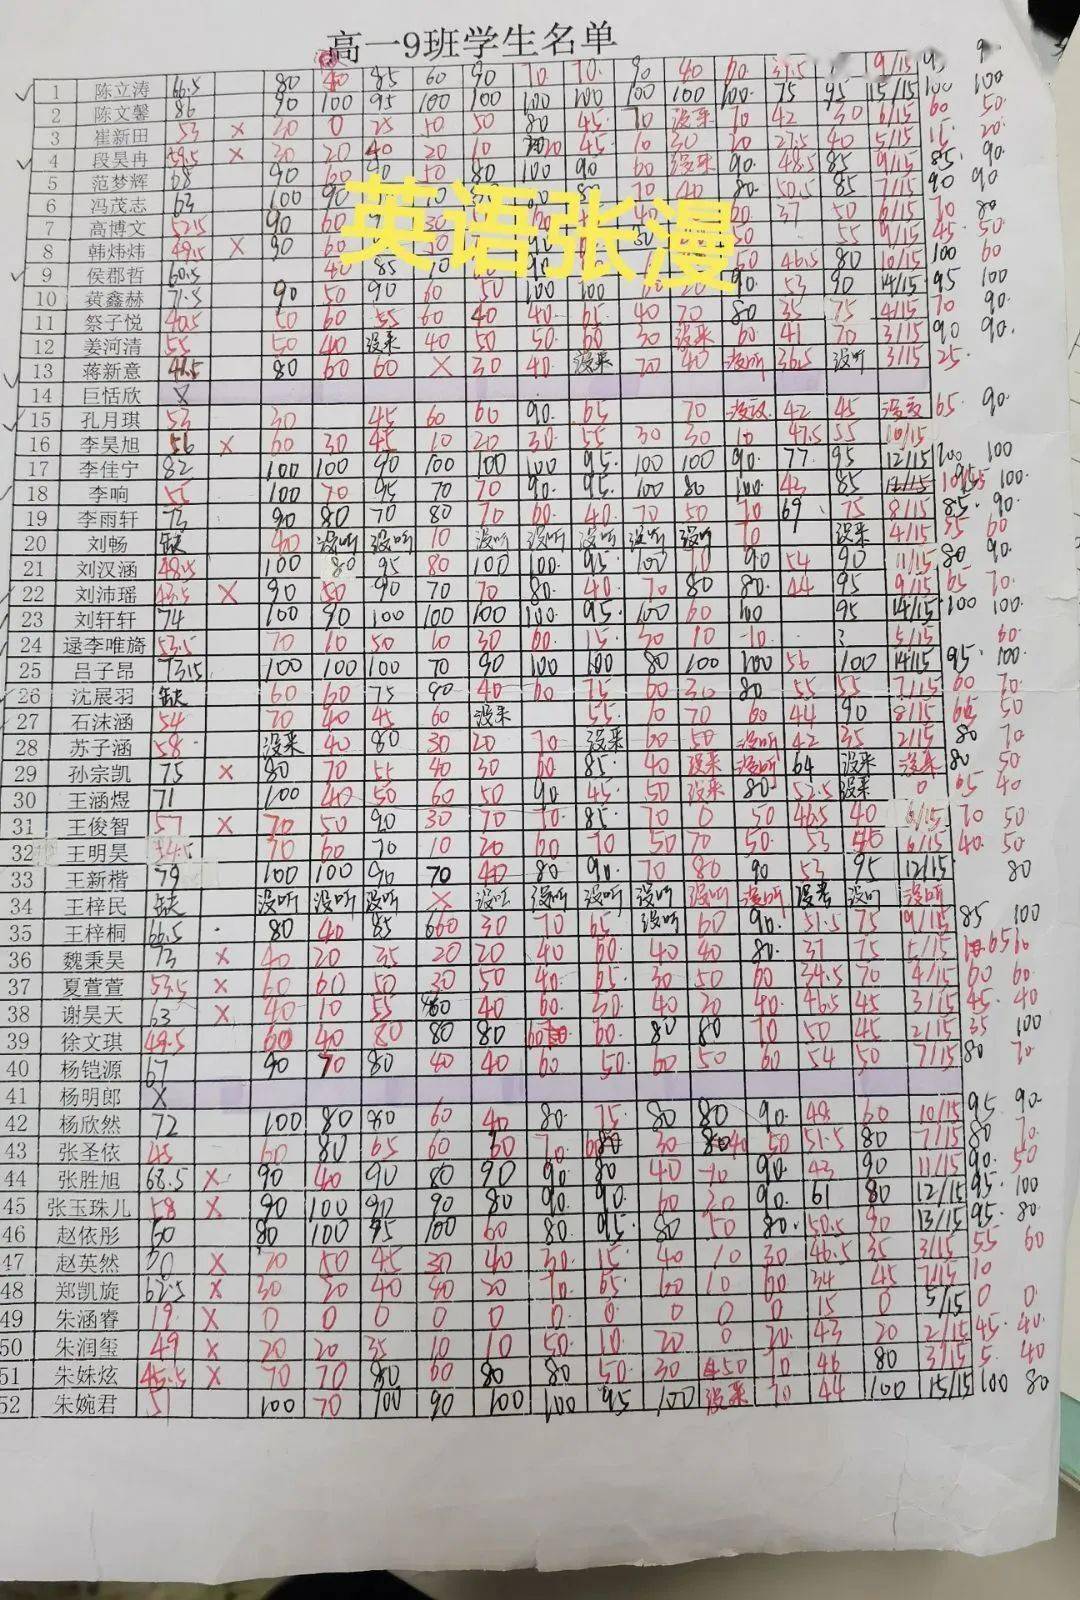 高一9班学生名单
英语张漫
1 陈立涛 66.5 80 40 85 60 90 70 70 90 40 60 37.5 9/15
2 陈文馨 86 90 100 95 100 100 100 100 100 100 100 75 95 15/15 100 100
3 崔新田 53 × 20 0 25 50 80 45 70 没来 70 42 30 6/15 60 50
4 段昊冉 59.5 × 30 20 40 20 10 20 45 10 30 27.5 40 5/15 15 20
5 范梦辉 68 90 60 90 80 100 90 60 没来 90 48.5 85 9/15 85 90
6 冯茂志 63 100 90 80 70 40 80 50.5 85 7/15 90 90
7 高博文 52.5 90 60 30 60 40 60 37 50 6/15 70 80
8 韩炜炜 49.5 × 90 60 90 50 55 9/15 45 50
9 侯郡哲 60.5 40 85 10 90 50 46.5 80 10/15 100 60
10 黄鑫赫 71.5 90 50 90 60 50 100 100 20 90 53 90 14/15 95 100
11 祭子悦 40.5 50 60 55 60 40 40 65 40 70 80 35 75 4/15 70 90
12 姜河清 55 50 40 没来 40 50 50 60 30 没来 60 41 70 3/15 90 90
13 蒋新意 41.5 80 60 60 × 30 40 没来 70 40 没听 36.5 没听 3/15 25
14 巨恬欣 ×
15 孔月琪 53 30 45 60 60 90 65 70 没交 42 45 没交 65 90
16 李昊旭 56 × 60 30 45 10 20 30 55 30 30 10 47.5 55 10/15
17 李佳宁 82 100 100 90 100 100 100 95 100 100 90 77 95 12/15 100 100
18 李响 55 100 70 95 70 70 90 95 100 80 100 43 85 95 100
19 李雨轩 73 90 80 70 80 70 60 40 70 50 70 69 75 8/15 85 90
20 刘畅 缺 40 没听 没听 10 没听 没听 没听 没听 没听 70 没来 4/15 55 60
21 刘汉涵 48.5 100 80 95 80 100 100 95 100 90 54 90 11/15 80 90
22 刘沛瑶 43.5 × 90 50 90 70 70 80 40 70 80 80 44 95 9/15 65 70
23 刘轩轩 74 100 90 100 100 100 100 95 100 60 100 95 14/15 100 100
24 逯李唯旖 53.5 70 10 50 10 30 60 15 30 10 10 ? 5/15 60
25 吕子昂 73.5 100 100 100 70 90 100 100 80 100 100 56 100 14/15 95 100
26 沈展羽 缺 60 60 75 90 40 60 75 60 30 80 55 55 7/15 60 70
27 石沫涵 54 70 40 45 60 没来 55 10 70 60 44 90 8/15 65 50
28 苏子涵 58 没来 40 80 30 20 70 没来 60 50 没听 42 35 2/15 80 70
29 孙宗凯 75 × 80 70 55 40 30 60 85 40 没来 没听 64 没来 没来 80 50
30 王涵煜 71 100 40 50 60 50 90 45 50 没来 80 52.5 没来 0 65 40
31 王俊智 57 × 70 50 90 30 70 70 85 70 0 50 46.5 40 6/15 70 50
32 王明昊 34.5 70 60 70 10 20 60 70 50 70 50 53 40 6/15 40 50
33 王新楷 79 100 100 90 70 40 80 90 70 80 90 53 95 12/15 80
34 王梓民 缺 没听 没听 没听 × 没听 没听 没听 没听 没听 没听 没考 没听 没听
35 王梓桐 66.5 80 40 85 60 30 70 65 没听 60 90 51.5 75 9/15 85 100
36 魏秉昊 73 × 40 20 35 20 20 40 60 40 40 80 37 75 5/15 65
37 夏萱萱 53.5 × 60 60 50 30 50 40 65 30 50 60 34.5 70 4/15 60 60
38 谢昊天 63 × 40 10 55 60 40 60 30 40 20 40 46.5 45 3/15 45 40
39 徐文琪 49.5 60 40 80 80 80 60 60 80 80 70 50 45 2/15 35 100
40 杨铠源 67 90 70 80 40 40 60 50 60 50 60 54 50 7/15 80 70
41 杨明郎 ×
42 杨欣然 72 100 80 80 60 40 80 75 80 80 90 49 60 10/15 95 90
43 张圣依 45 60 80 65 60 60 70 80 30 40 50 51.5 80 7/15 80 70
44 张胜旭 68.5 × 90 40 90 80 90 90 80 40 70 90 43 90 11/15 90 50
45 张玉珠儿 58 × 90 100 90 90 80 90 90 60 20 90 61 80 12/15 95 100
46 赵依彤 60 80 100 95 100 60 80 95 80 50 80 50.5 90 13/15 95 80
47 赵英然 50 × 70 50 45 30 40 30 15 40 10 30 46.5 35 3/15 55 60
48 郑凯旋 62.5 × 30 20 40 40 20 70 65 60 10 60 34 45 7/15 10
49 朱涵睿 19 × 0 0 0 0 0 0 0 0 0 0 15 0 5/15 0 0
50 朱润玺 49 × 20 20 35 10 10 50 10 20 0 20 43 20 2/15 45 40
51 朱姝炫 45.5 × 70 70 80 60 80 80 50 30 50 10 46 80 3/15 5 40
52 朱婉君 51 100 70 100 90 100 100 95 100 没来 70 44 100 15/15 100 80